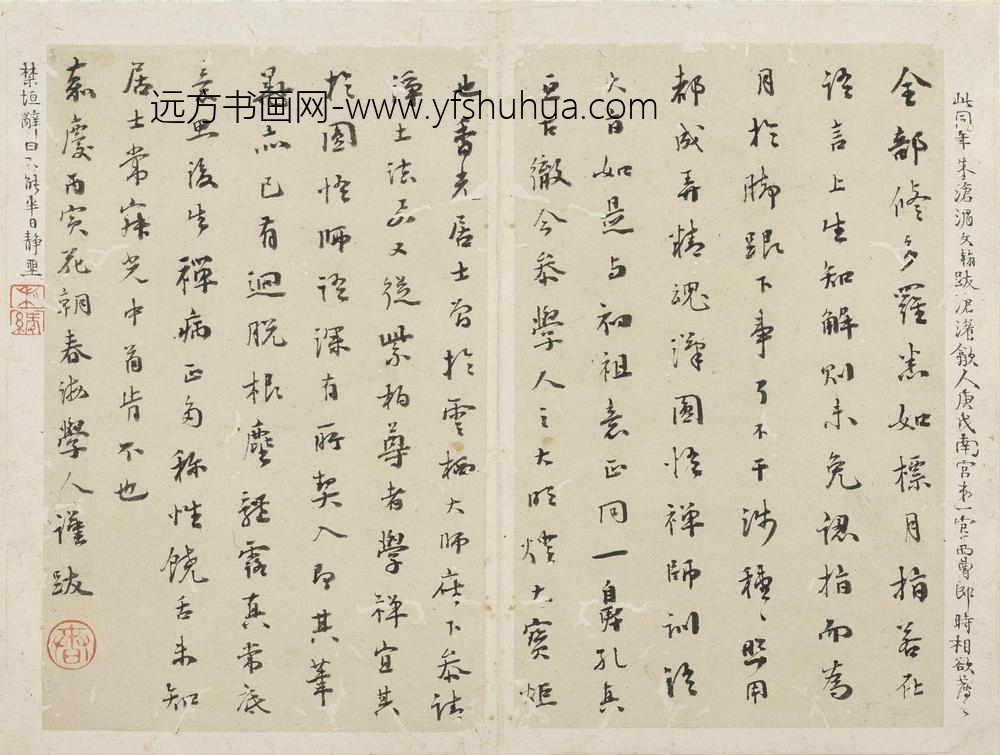 此同年朱滄湄文翰跋滄湄歙人庚戌南宮 官西曹郎時相欲薦之
全部修多羅悉如標月指若在
語言上生知解則未免認指而為
月於脚跟下事了不干涉種種照用
都成弄精魂漢圜悟禪師訓語
大旨如是与初祖意正同一自孔真
亘古徹今參學人之大明燈大寶炬
也香光居士曾於雲栖大師座下參請
淨土法又從紫柏尊者學禪宜其
於圜悟師語深有所契入即其筆
墨亦已有迴脫根塵體露真常底
意思後生禪病正多称性饒舌未知
居士常寂光中首肯不也
嘉慶丙寅花朝春 學人謹跋
禁垣 日不能半日靜
遠方书画网-www.yfshuhua.com